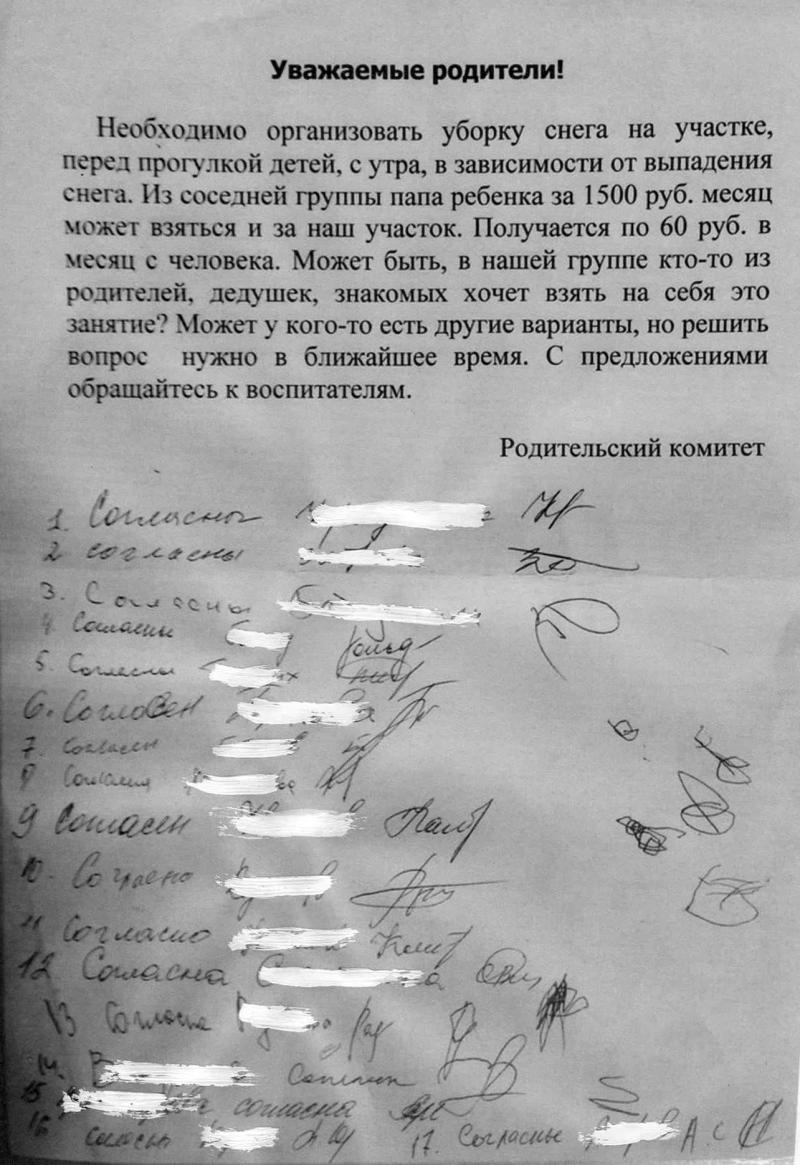 Уважаемые родители!
Необходимо организовать уборку снега на участке,
перед прогулкой детей, с утра, в зависимости от выпадения
снега. Из соседней группы папа ребенка за 1500 руб. месяц
может взяться и за наш участок. Получается по 60 руб. в
месяц с человека. Может быть, в нашей группе кто-то из
родителей, дедушек, знакомых хочет взять на себя это
занятие? Может у кого-то есть другие варианты, но решить
вопрос нужно в ближайшее время. С предложениями
обращайтесь к воспитателям.
Родительский комитет
1. Согласны
2 согласны
3. Согласны
4. Согласны
5. Согласны
6. Согловен
7. Согласен
8
9 Согласен
10.
11 Согласно
12 Согласна
13 Согласна
14.
15 согласна
16 17. Согласны А.С